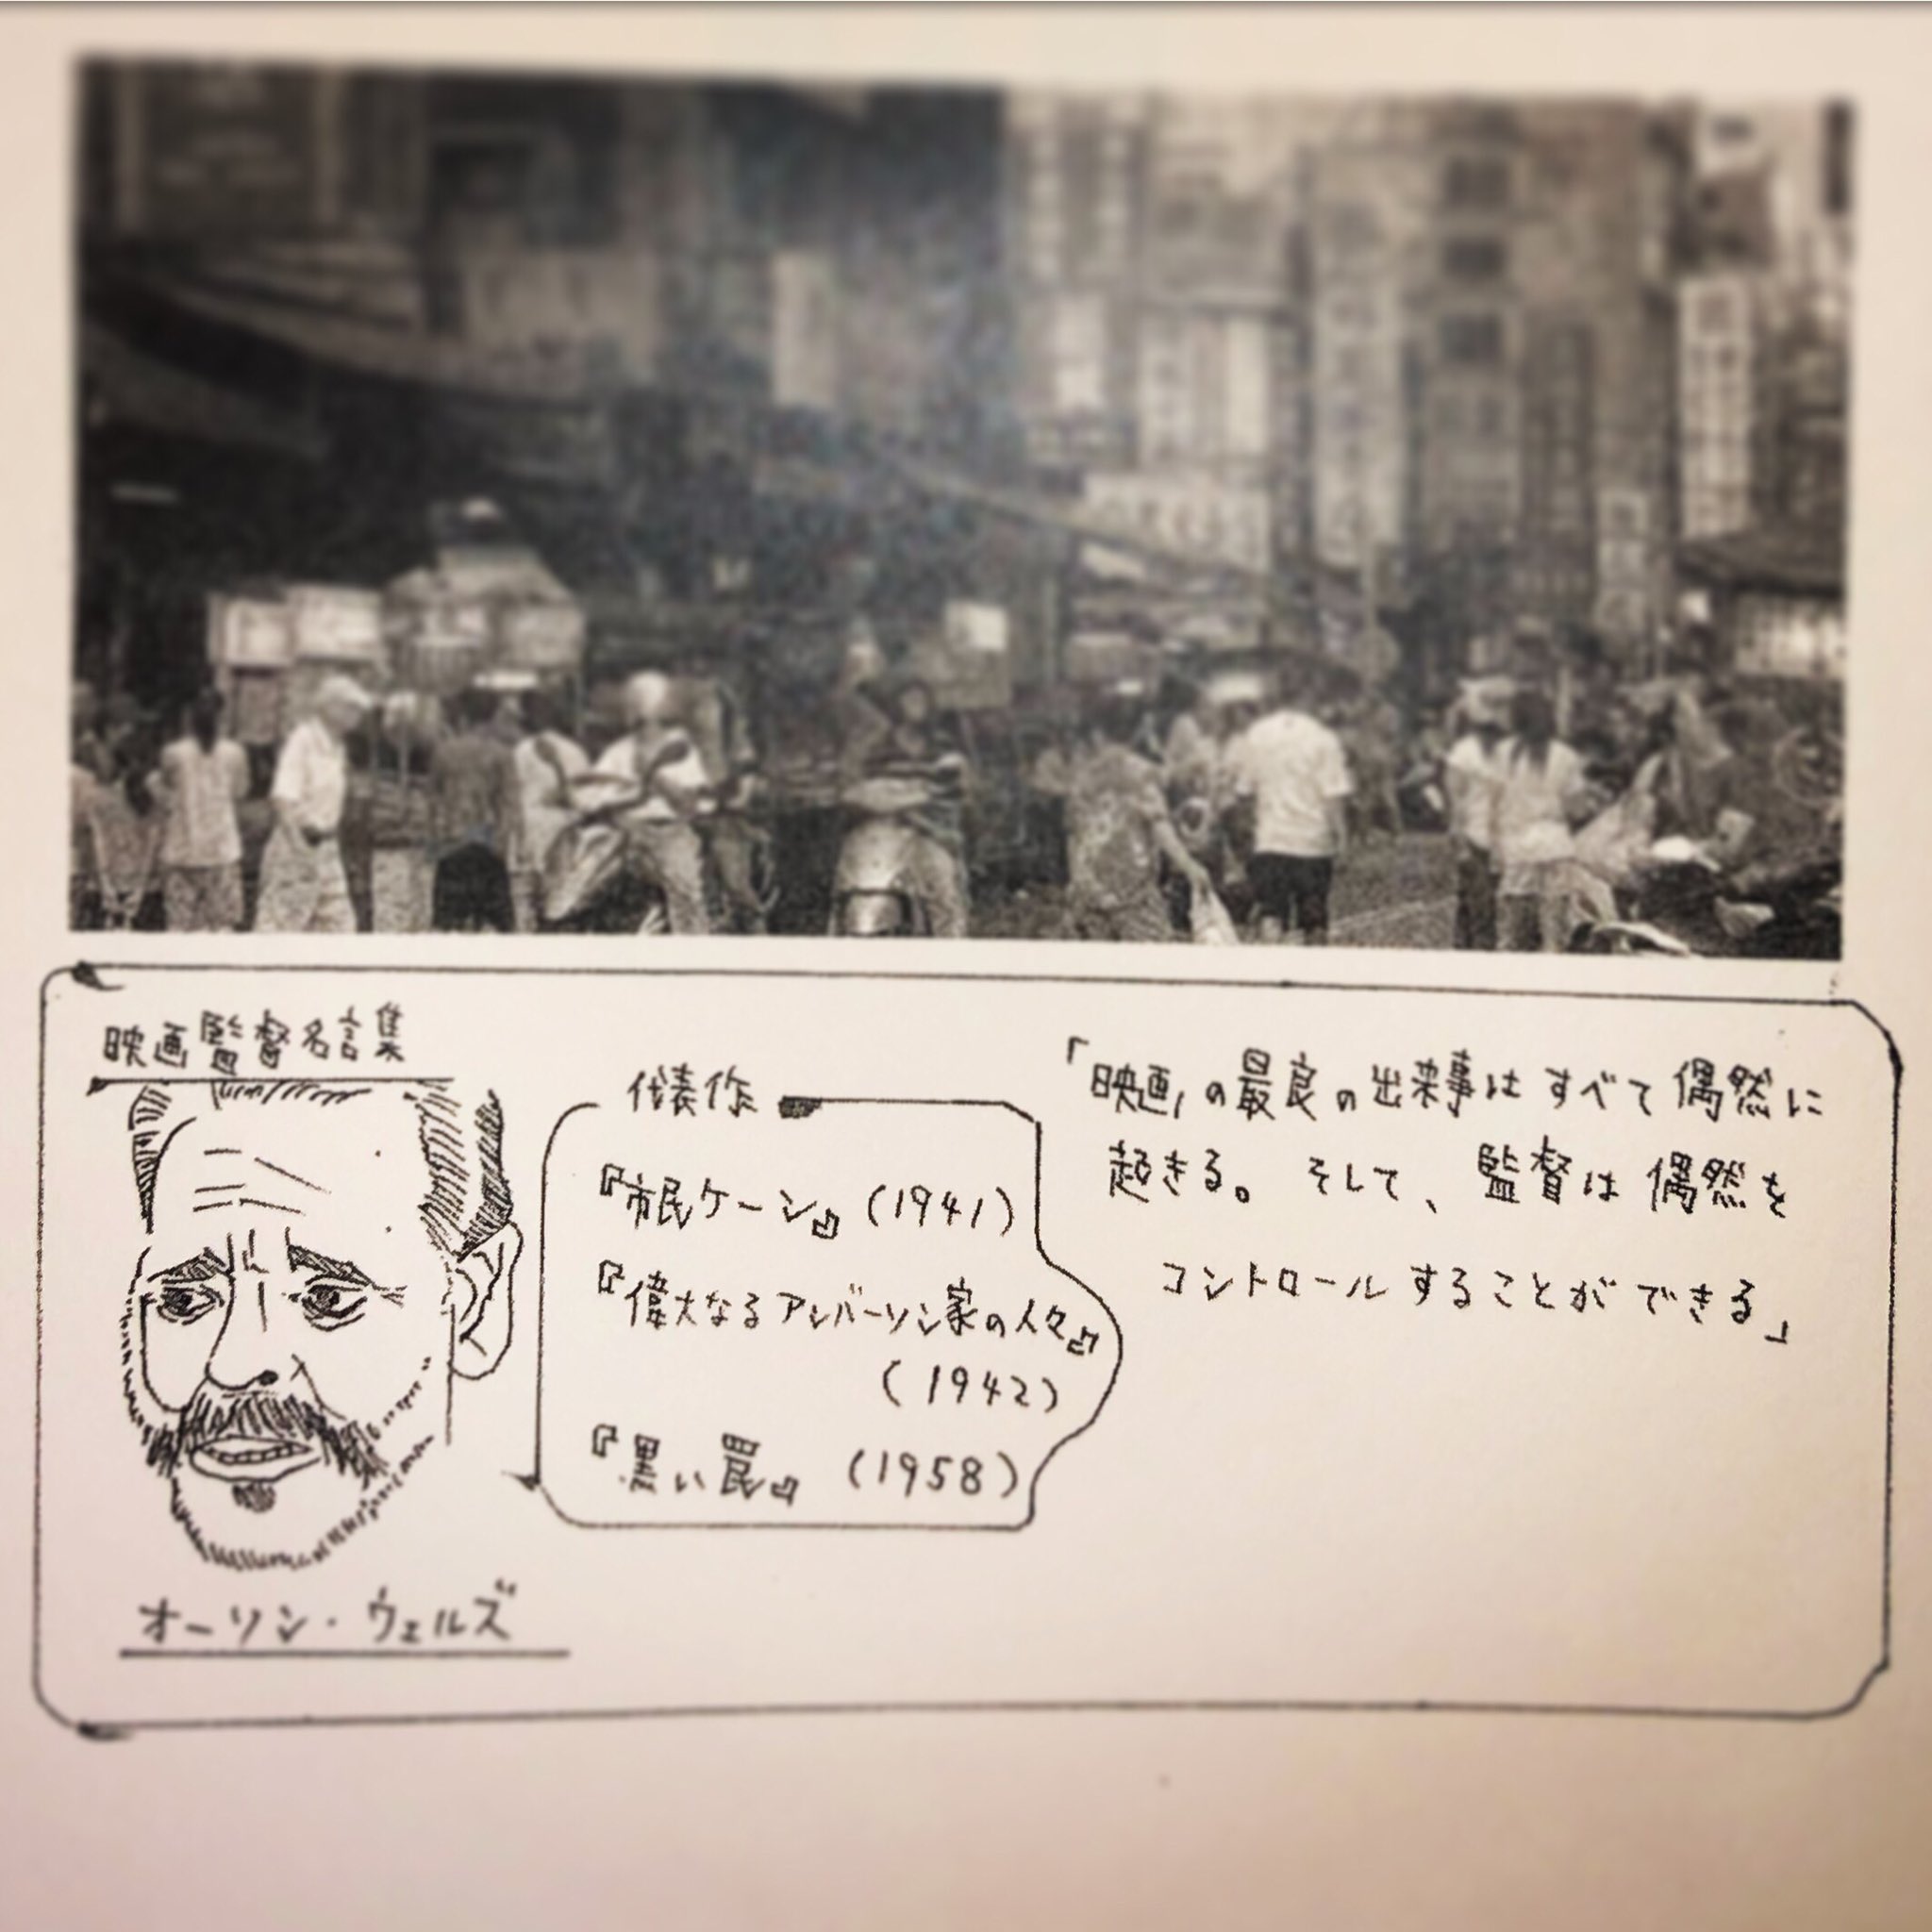 映画監督名言集
代表作
『市民ケーン』(1941)
『偉大なるアンバーソン家の人々』
(1942)
『黒い罠』(1958)
「映画の最良の出来事はすべて偶然に
起きる。そして、監督は偶然を
コントロールすることができる」
オーソン・ウェルズ